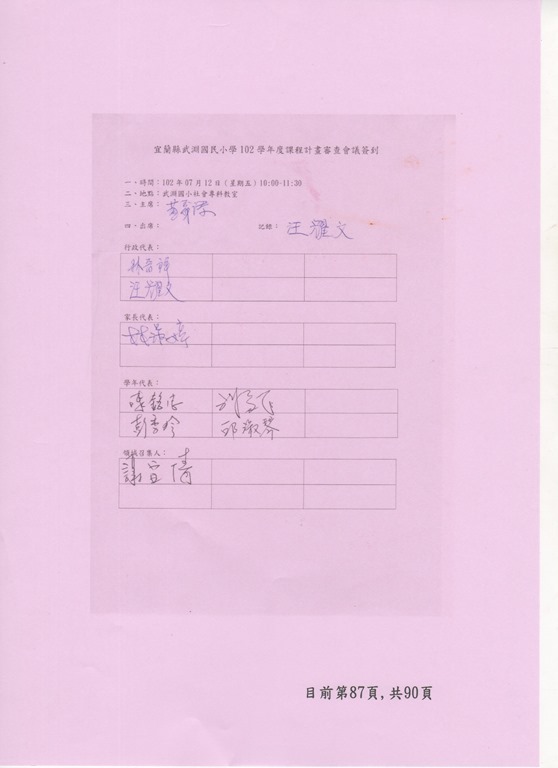 宜蘭縣武淵國民小學102學年度課程計畫審查會議簽到
一、時間：102年07月12日(星期五)10:00-11:30
二、地點：武淵國小社會專科教室
三、主席：
四、出席： 記錄： 汪耀文
行政代表：
汪耀文
家長代表：
學年代表：
彭秀玲 邱淑琴
領域召集人：
謝宜倩
目前第87頁,共90頁